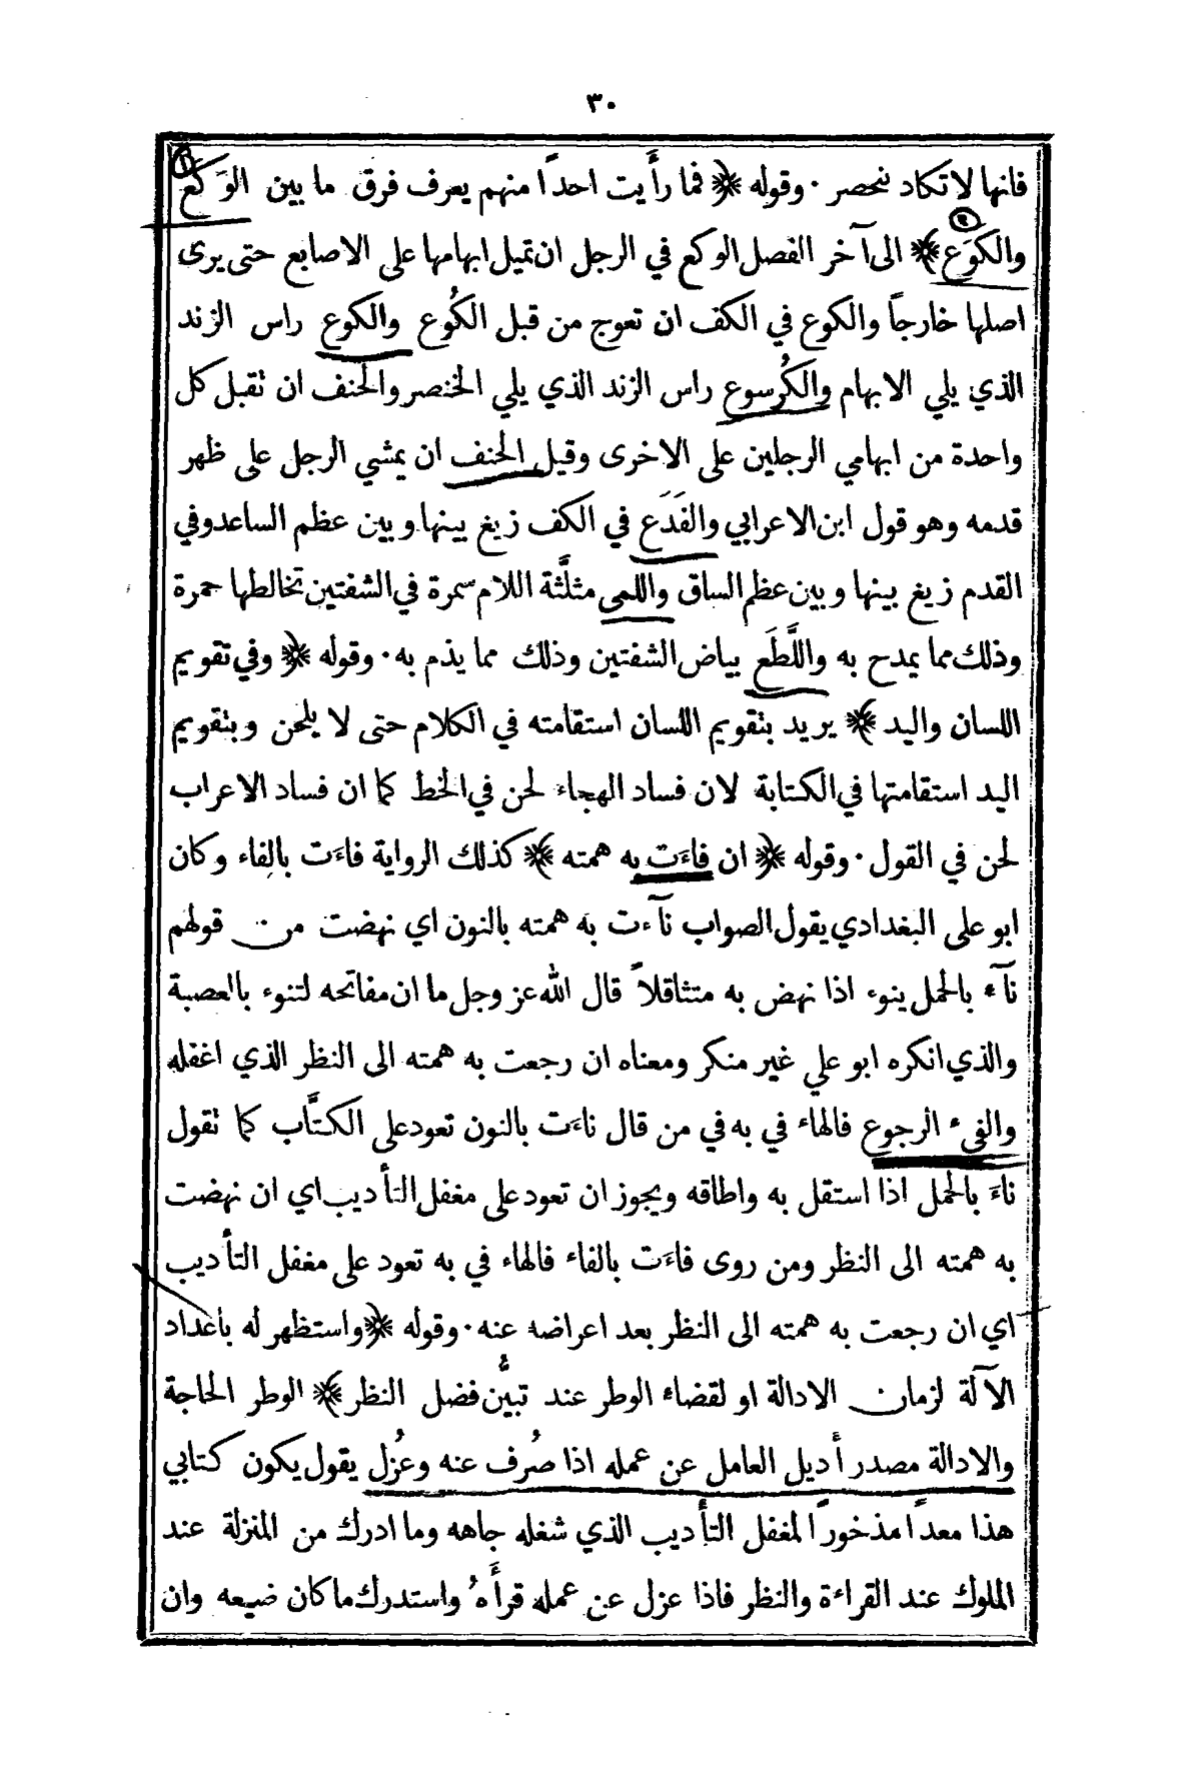 ٣٠
فانها لا تكاد تنحصر · وقوله ﴿ فما رأَيت احداً منهم يعرف فرق ما بين الوَكَع
والكَوَع ﴾ الى آخر الفصل الوكع في الرجل ان تميل ابهامها على الاصابع حتى يرى
اصلها خارجاً والكوع في الكف ان تعوج من قبل الكُوع والكوع راس الزند
الذي يلي الابهام والكُرسوع راس الزند الذي يلي الخنصر والحنف ان تقبل كل
واحدة من ابهامي الرجلين على الاخرى وقيل الحنف ان يمشي الرجل على ظهر
قدمه وهو قول ابن الاعرابي والفَدَع في الكف زيغ بينها وبين عظم الساعد وفي
القدم زيغ بينها وبين عظم الساق واللمى مثلَّثة اللام سمرة في الشفتين تخالطها حمرة
وذلك مما يمدح به واللَّطَع بياض الشفتين وذلك مما يذم به · وقوله ﴿ وفي تقويم
اللسان واليد ﴾ يريد بتقويم اللسان استقامته في الكلام حتى لا يلحن وبتقويم
اليد استقامتها في الكتابة لان فساد الهجاء لحن في الخط كما ان فساد الاعراب
لحن في القول · وقوله ﴿ ان فاءَت به همته ﴾ كذلك الرواية فاءَت بالفاء وكان
ابو على البغدادي يقول الصواب نآءت به همته بالنون اي نهضت من قولهم
نآء بالحمل ينوء اذا نهض به متثاقلاً قال الله عز وجل ما ان مفاتحه لتنوء بالعصبة
والذي انكره ابو علي غير منكر ومعناه ان رجعت به همته الى النظر الذي اغفله
والفيء الرجوع فالهاء في به في من قال ناءَت بالنون تعود على الكتَّاب كما تقول
ناءَ بالحمل اذا استقل به واطاقه ويجوز ان تعود على مغفل التأديب اي ان نهضت
به همته الى النظر ومن روى فاءَت بالفاء فالهاء في به تعود على مغفل التأديب
اي ان رجعت به همته الى النظر بعد اعراضه عنه · وقوله ﴿ واستظهر له باعداد
الآلة لزمان الادالة او لقضاء الوطر عند تبيُّن فضل النظر ﴾ الوطر الحاجة
والادالة مصدر أُديل العامل عن عمله اذا صُرف عنه وعُزل يقول يكون كتابي
هذا معداً مذخوراً لمغفل التأديب الذي شغله جاهه وما ادرك من المنزلة عند
الملوك عند القراءة والنظر فاذا عزل عن عمله قرأَهُ واستدرك ما كان ضيعه وان